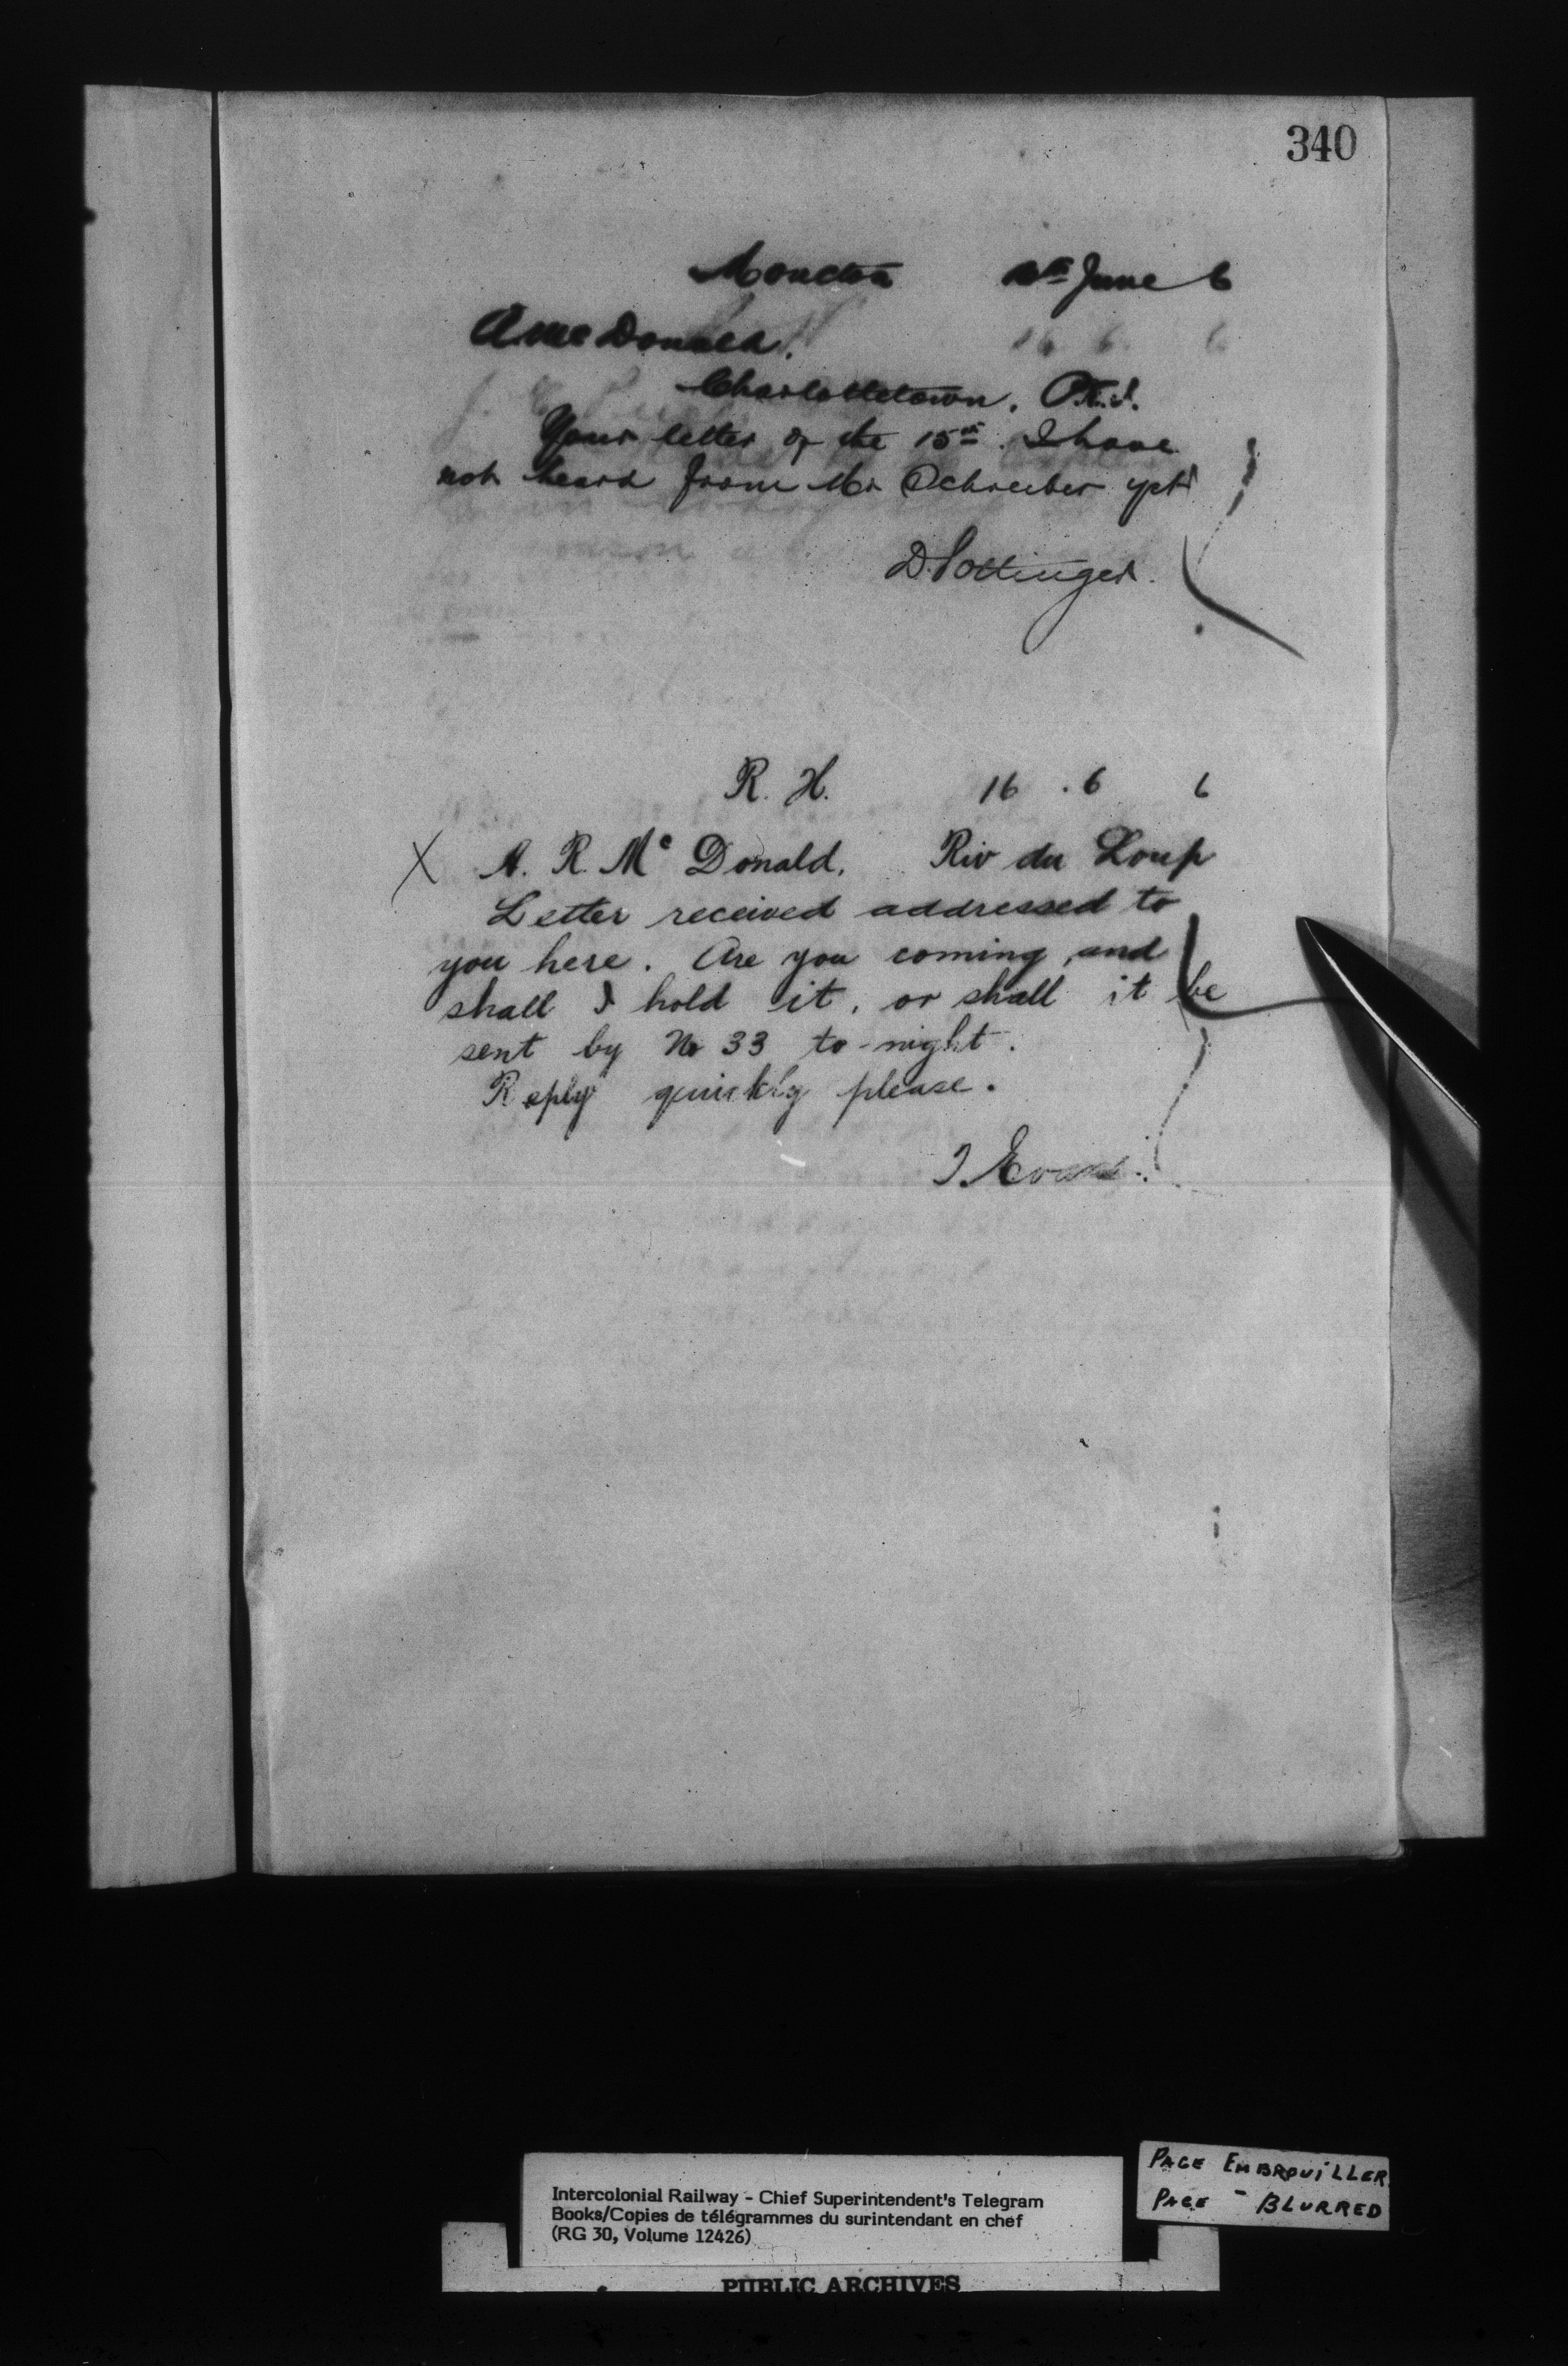 340
Moncton June 6
A McDonald.
Charlottetown. P.E.I.
Your letter of the 15th. I have
not heard from Mr Schreiber yet
D. Pottinger.
R. H. 16 . 6 6
X A. R. Mc Donald. Riv du Loup
Letter received addressed to
you here. Are you coming and
shall I hold it, or shall it be
sent by No 33 to-night.
Reply quickly please.
T. Evans.
Intercolonial Railway - Chief Superintendent's Telegram
Books/Copies de télégrammes du surintendant en chef
(RG 30, Volume 12426)
PUBLIC ARCHIVES
PAGE EMBROUILLER
PAGE - BLURRED